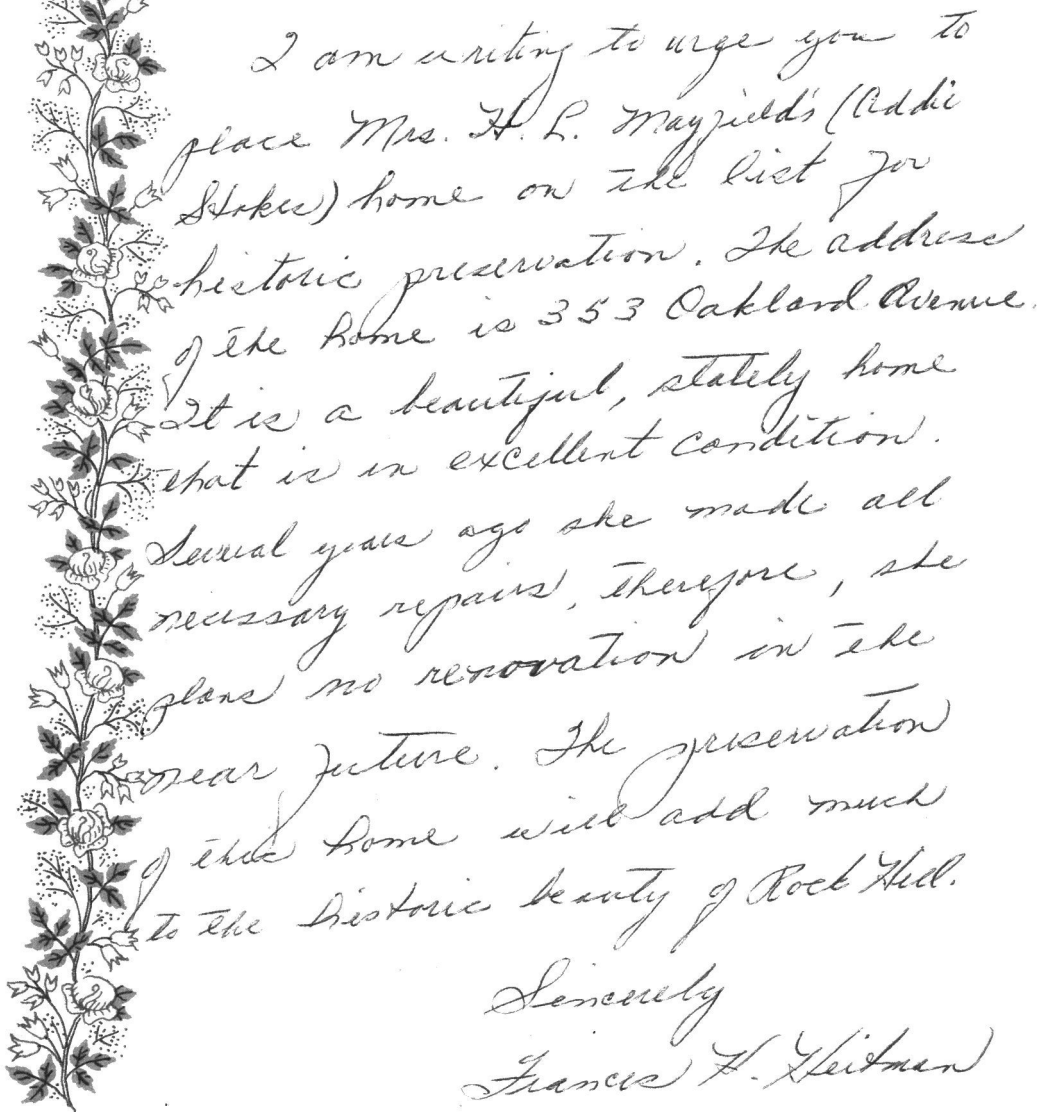 I am writing to urge you to
place Mrs. H. L. Mayfield's (Addie
Stokes) home on the list for
historic preservation. The address
of the home is 353 Oakland Avenue.
It is a beautiful, stately home
that is in excellent condition.
Several years ago she made all
necessary repairs, therefore, she
plans no renovation in the
near future. The preservation
of this home will add much
to the historic beauty of Rock Hill.
Sincerely
Frances H. Heitman